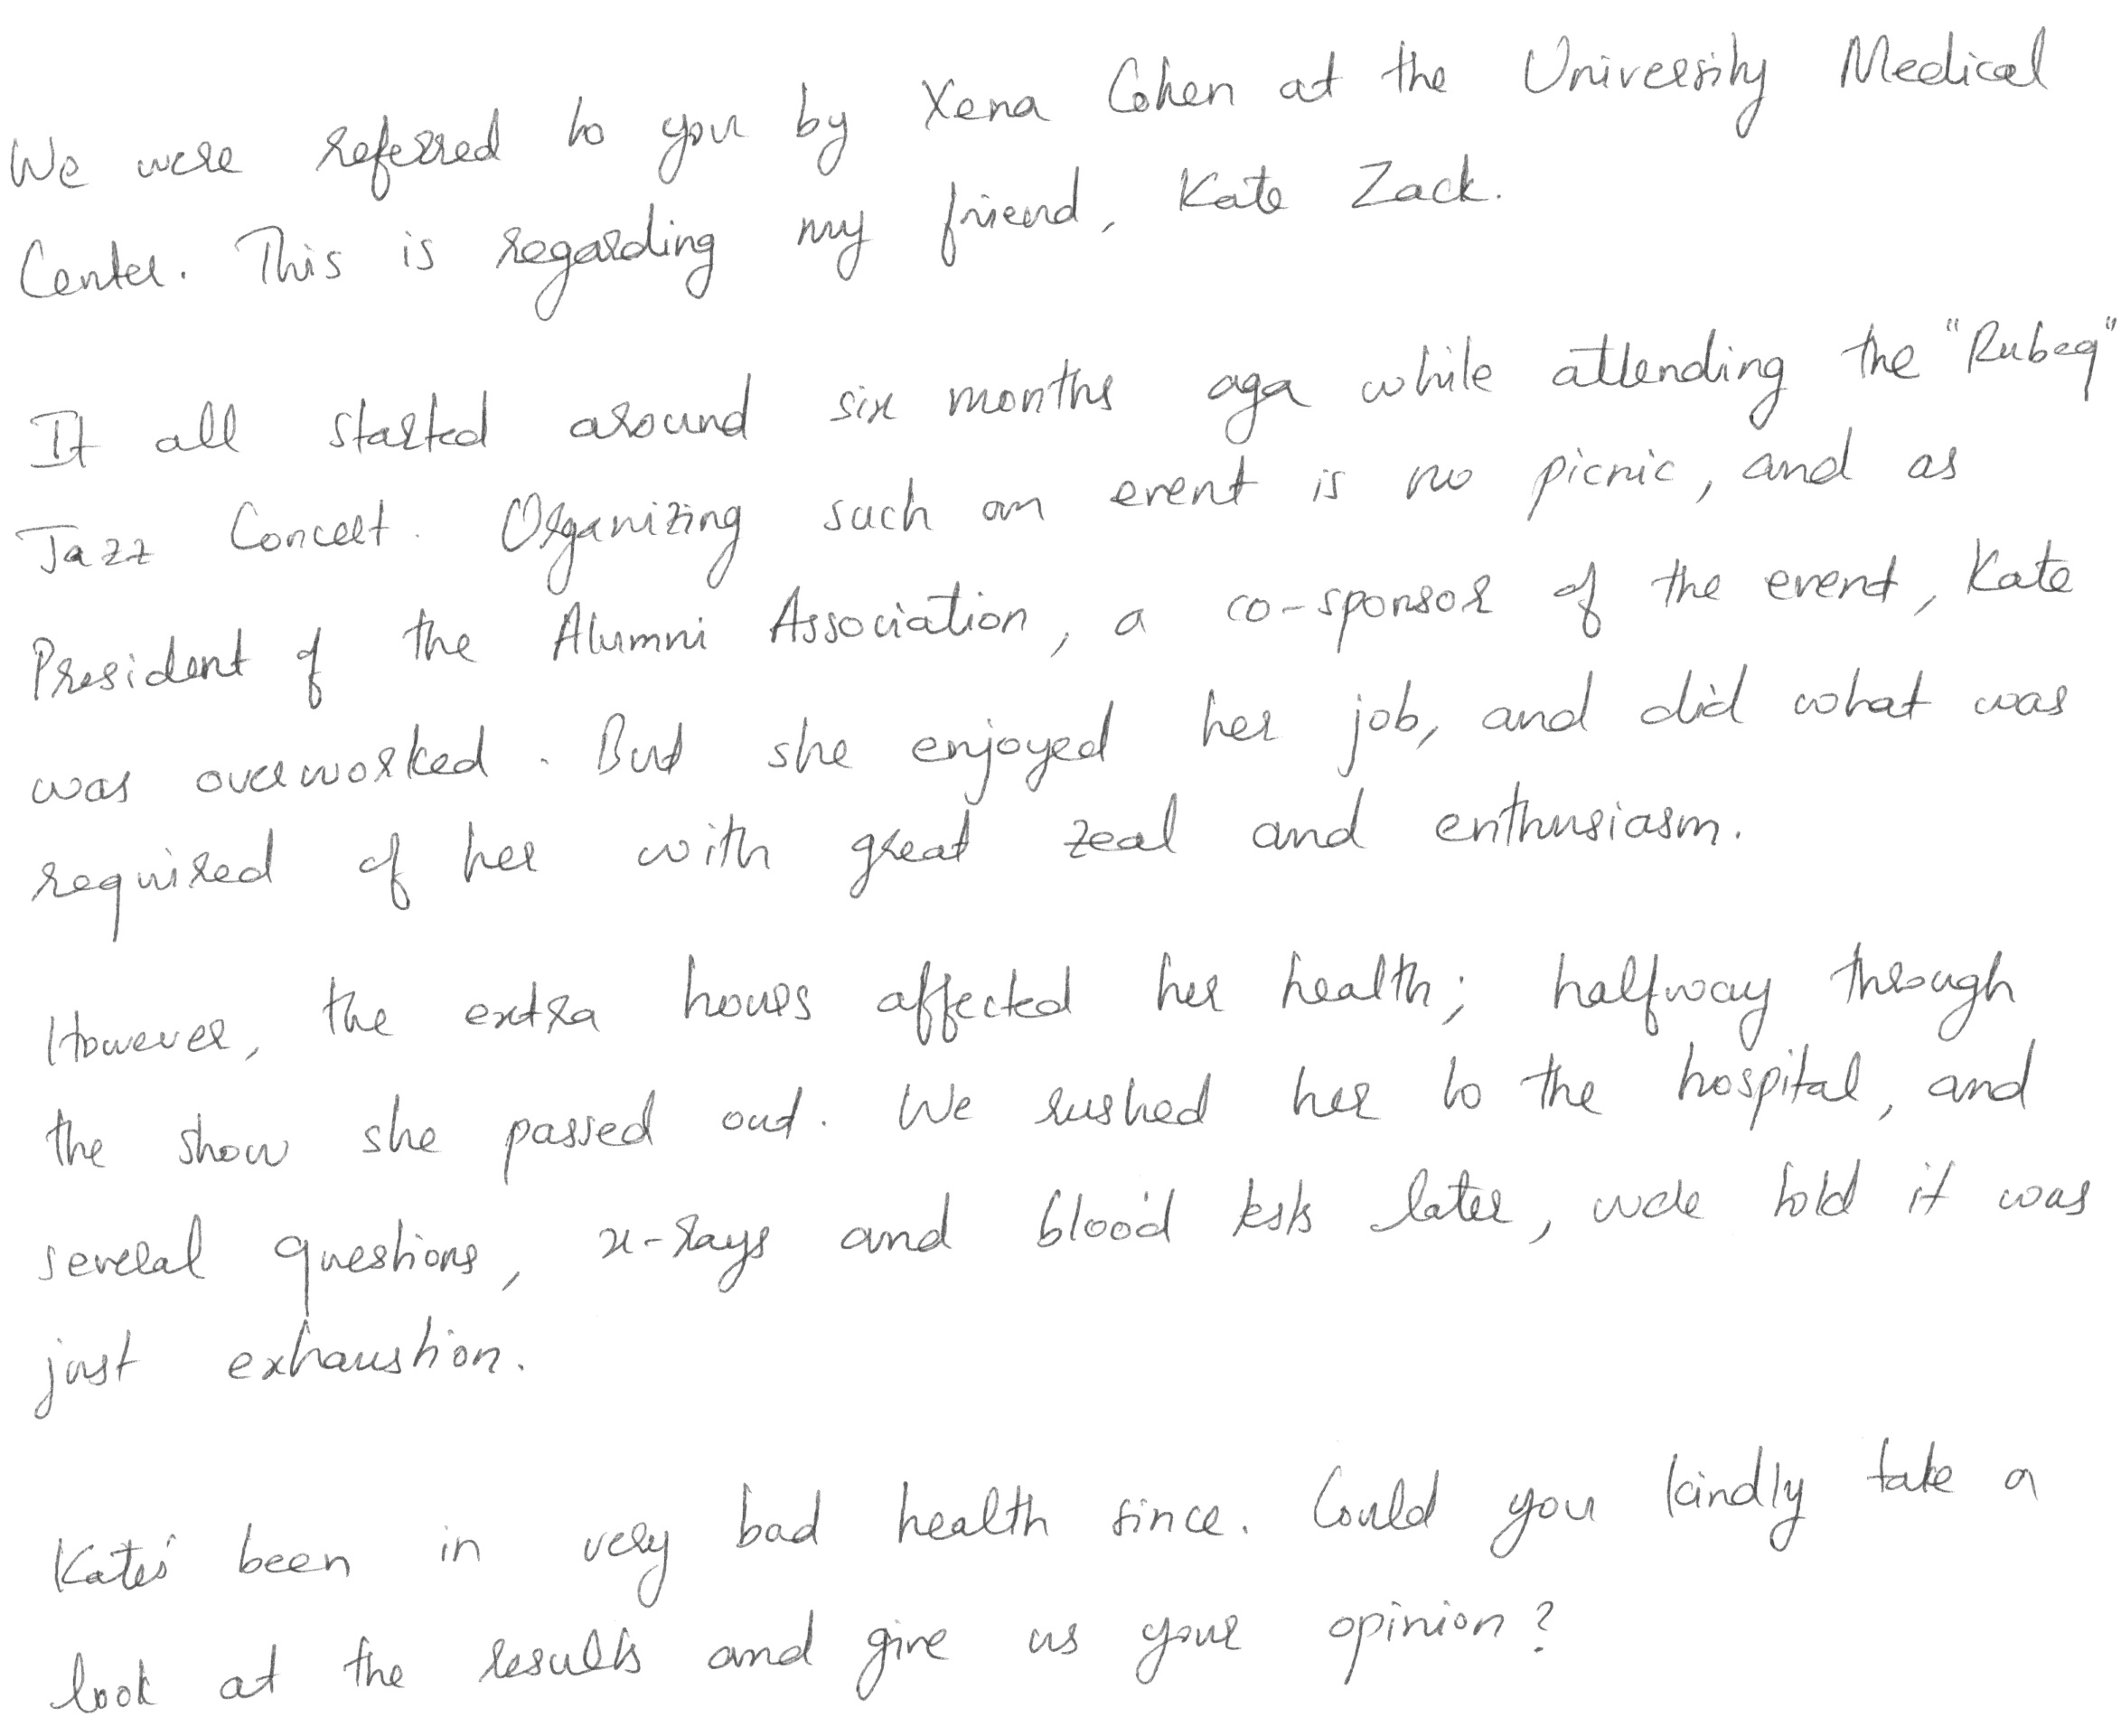 We were referred to you by Xena Cohen at the University Medical
Center. This is regarding my friend, Kate Zack.
It all started around six months aga while attending the "Rubeq"
Jazz Concert. Organizing such an event is no picnic, and as
President of the Alumni Association, a co-sponsor of the event, Kate
was overworked. But she enjoyed her job, and did what was
required of her with great zeal and enthusiasm.
However, the extra hours affected her health; halfway through
the show she passed out. We rushed her to the hospital, and
several questions, x-rays and blood tests later, were told it was
just exhaustion.
Kate's been in very bad health since. Could you kindly take a
look at the results and give us your opinion?